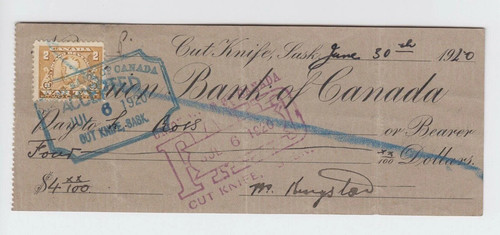 Cut Knife, Sask. June 30th 1920
Union Bank of Canada
CANADA
ACCEPTED
JUL 6 1920
CUT KNIFE-SASK.
Pay to L. Coors or Bearer
Four xx/100 Dollars.
CANADA
PAID
6 1920
CUT KNIFE,
$4 xx/100
M. Kingston
2 2